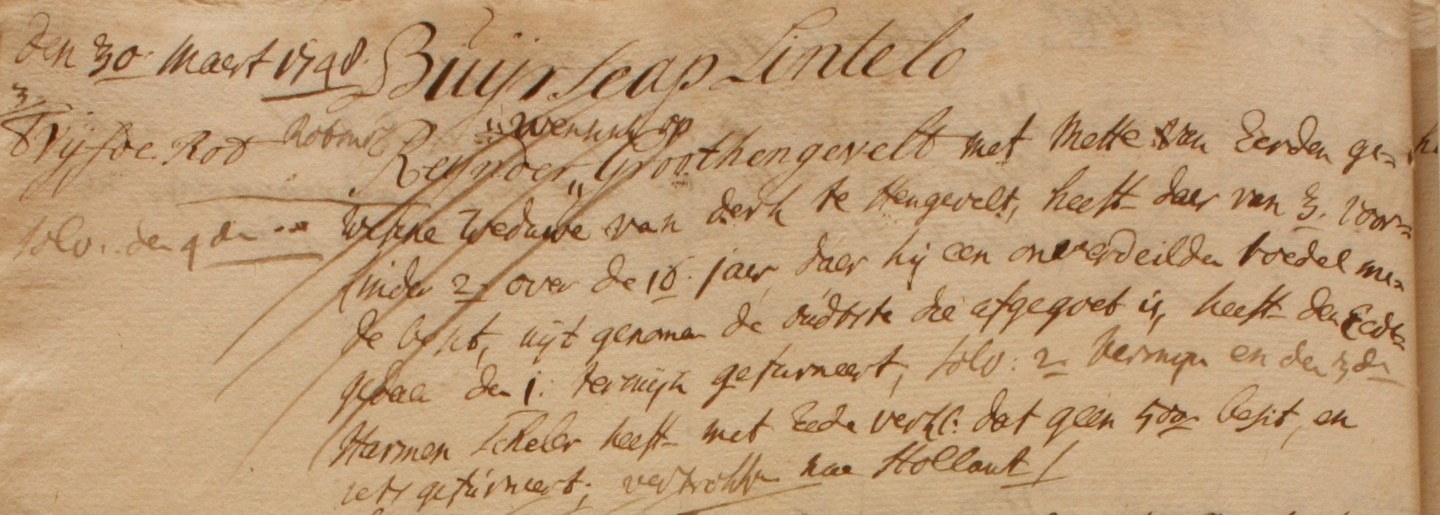 den 30 Maart 1748. Buijrscap Lintelo
3
Vijfde Rot
wennink op
Reijnder Groothengevelt met Mette van Eerden ge=
wesne Weduwe van derk te Hengevelt, heeft daer van 3. voor=
solv. den 4 de
kinder 2. over de 16. jaer, daer hij een onverdeilden boedel me=
de besit, uijt genomen de oudste die afgegoet is, heeft den Eede
gedaen den 1. termijn gefurneert, solv: 2 termijn en de 3 de
Harmen Scheler heeft met Eede verkl: dat geen 500 besit, en
iets gefurneert; vertrokken nae Hollant